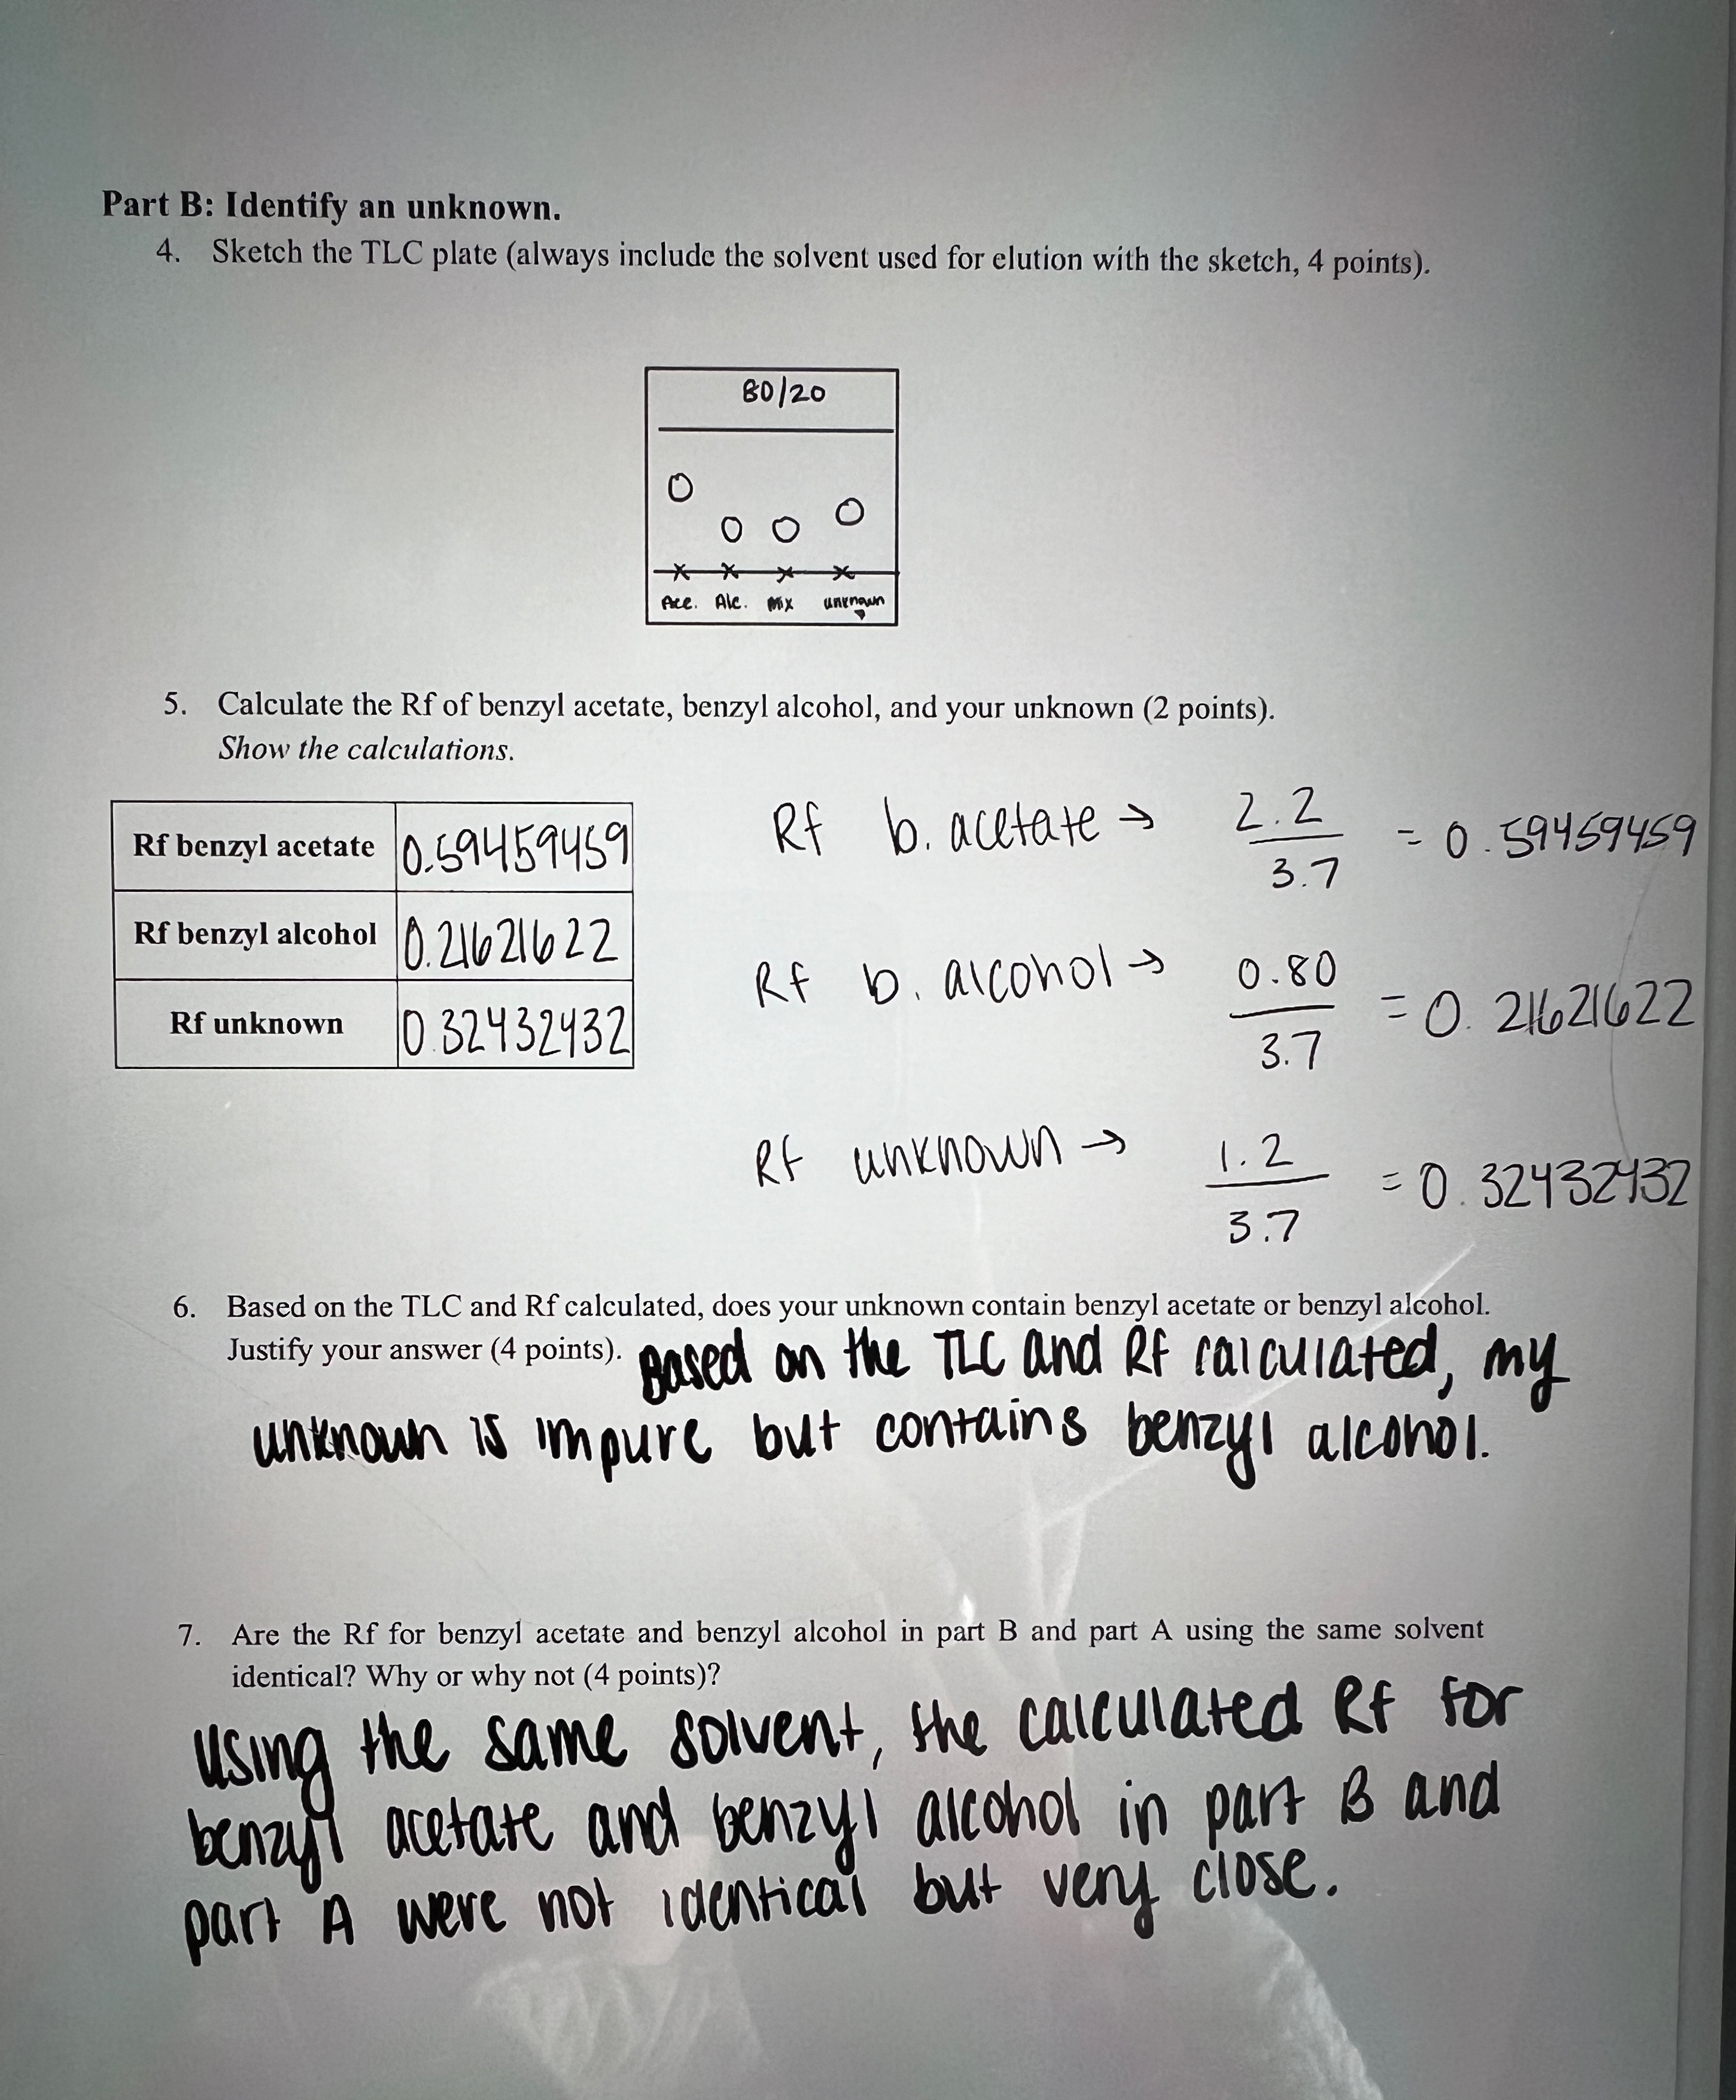 Part B: Identify an unknown.
4. Sketch the TLC plate (always include the solvent used for elution with the sketch, 4 points).
80/20
Ace. Alc. Mix unknown
5. Calculate the Rf of benzyl acetate, benzyl alcohol, and your unknown (2 points).
Show the calculations.
Rf benzyl acetate 0.59459459
Rf benzyl alcohol 0.21621622
Rf unknown 0.32432432
Rf b. acetate → 2.2 / 3.7 = 0.59459459
Rf b. alcohol → 0.80 / 3.7 = 0.21621622
Rf unknown → 1.2 / 3.7 = 0.32432432
6. Based on the TLC and Rf calculated, does your unknown contain benzyl acetate or benzyl alcohol.
Justify your answer (4 points). Based on the TLC and Rf calculated, my
unknown is impure but contains benzyl alcohol.
7. Are the Rf for benzyl acetate and benzyl alcohol in part B and part A using the same solvent
identical? Why or why not (4 points)?
Using the same solvent, the calculated Rf for
benzyl acetate and benzyl alcohol in part B and
part A were not identical but very close.